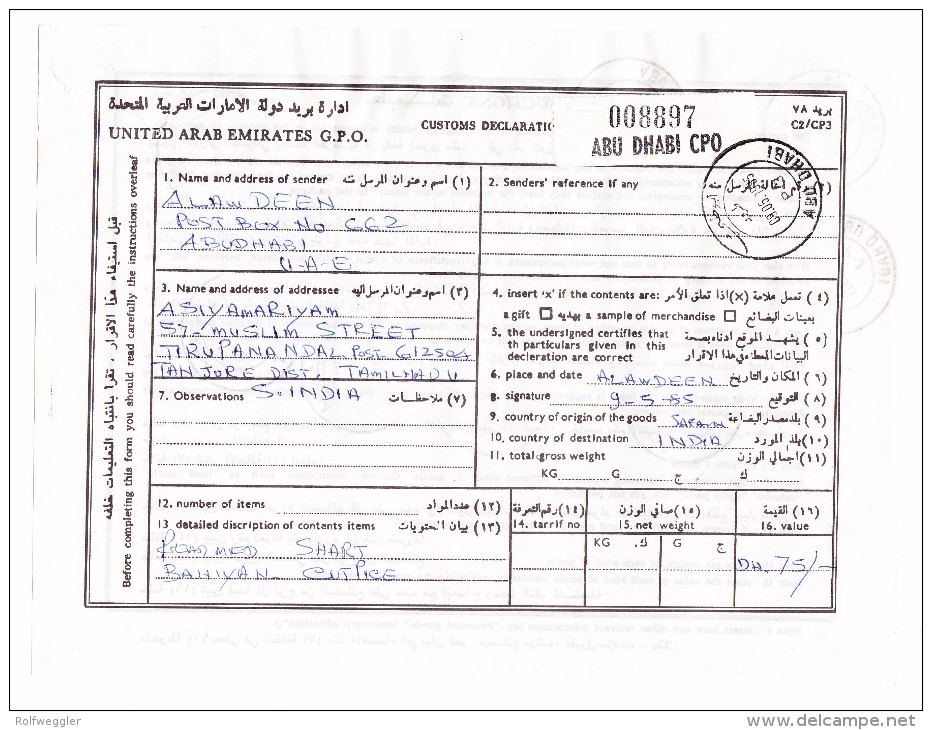 ادارة بريد دولة الامارات العربية المتحدة
UNITED ARAB EMIRATES G.P.O.
CUSTOMS DECLARATIO
008897
ABU DHABI CPO
بريد ٧٨
C2/CP3
ABU DHABI
قبل استيفاء هذا الاقرار ، تقرأ بانتباه التعليمات خلفه
Before completing this form you should read carefully the instructions overleaf
1. Name and address of sender (١) اسم وعنوان المرسل
ALAWDEEN
POST BOX No 662
ABUDHABI
U-A-E
2. Senders' reference if any
3. Name and address of addressee (٣) اسم وعنوان المرسل اليه
ASIYAMARIYAM
57- MUSLIM STREET
TIRUPANANDAL POST 612504
TANJORE DIST, TAMILNADU
S.INDIA
4. insert 'x' if the contents are: (٤) تعمل علامة (x) اذا تعلق الأمر
a gift بهدية a sample of merchandise بعينات البضائع
5. the undersigned certifies that (٥) يشهد الموقع ادناه بصحة
th particulars given in this البيانات المعطاه في هذا الاقرار
declaration are correct
6. place and date ALAWDEEN (٦) المكان والتاريخ
8. signature 9-5-85 (٨) التوقيع
7. Observations (٧) ملاحظات
9. country of origin of the goods (٩) بلد مصدر البضاعة
10. country of destination INDIA (١٠) بلد المورد
11. total:gross weight (١١) اجمالي الوزن
KG G ج ك
12. number of items (١٢) عدد المواد
13 detailed discription of contents items (١٣) بيان المحتويات
SHART
BANIYAN CUTPICE
(١٤) رقم التعرفة
14. tarrif no
(١٥) صافي الوزن
15. net weight
(١٦) القيمة
16. value
KG ك. G ج
DH. 75/-
Rolfweggler
delcampe.net